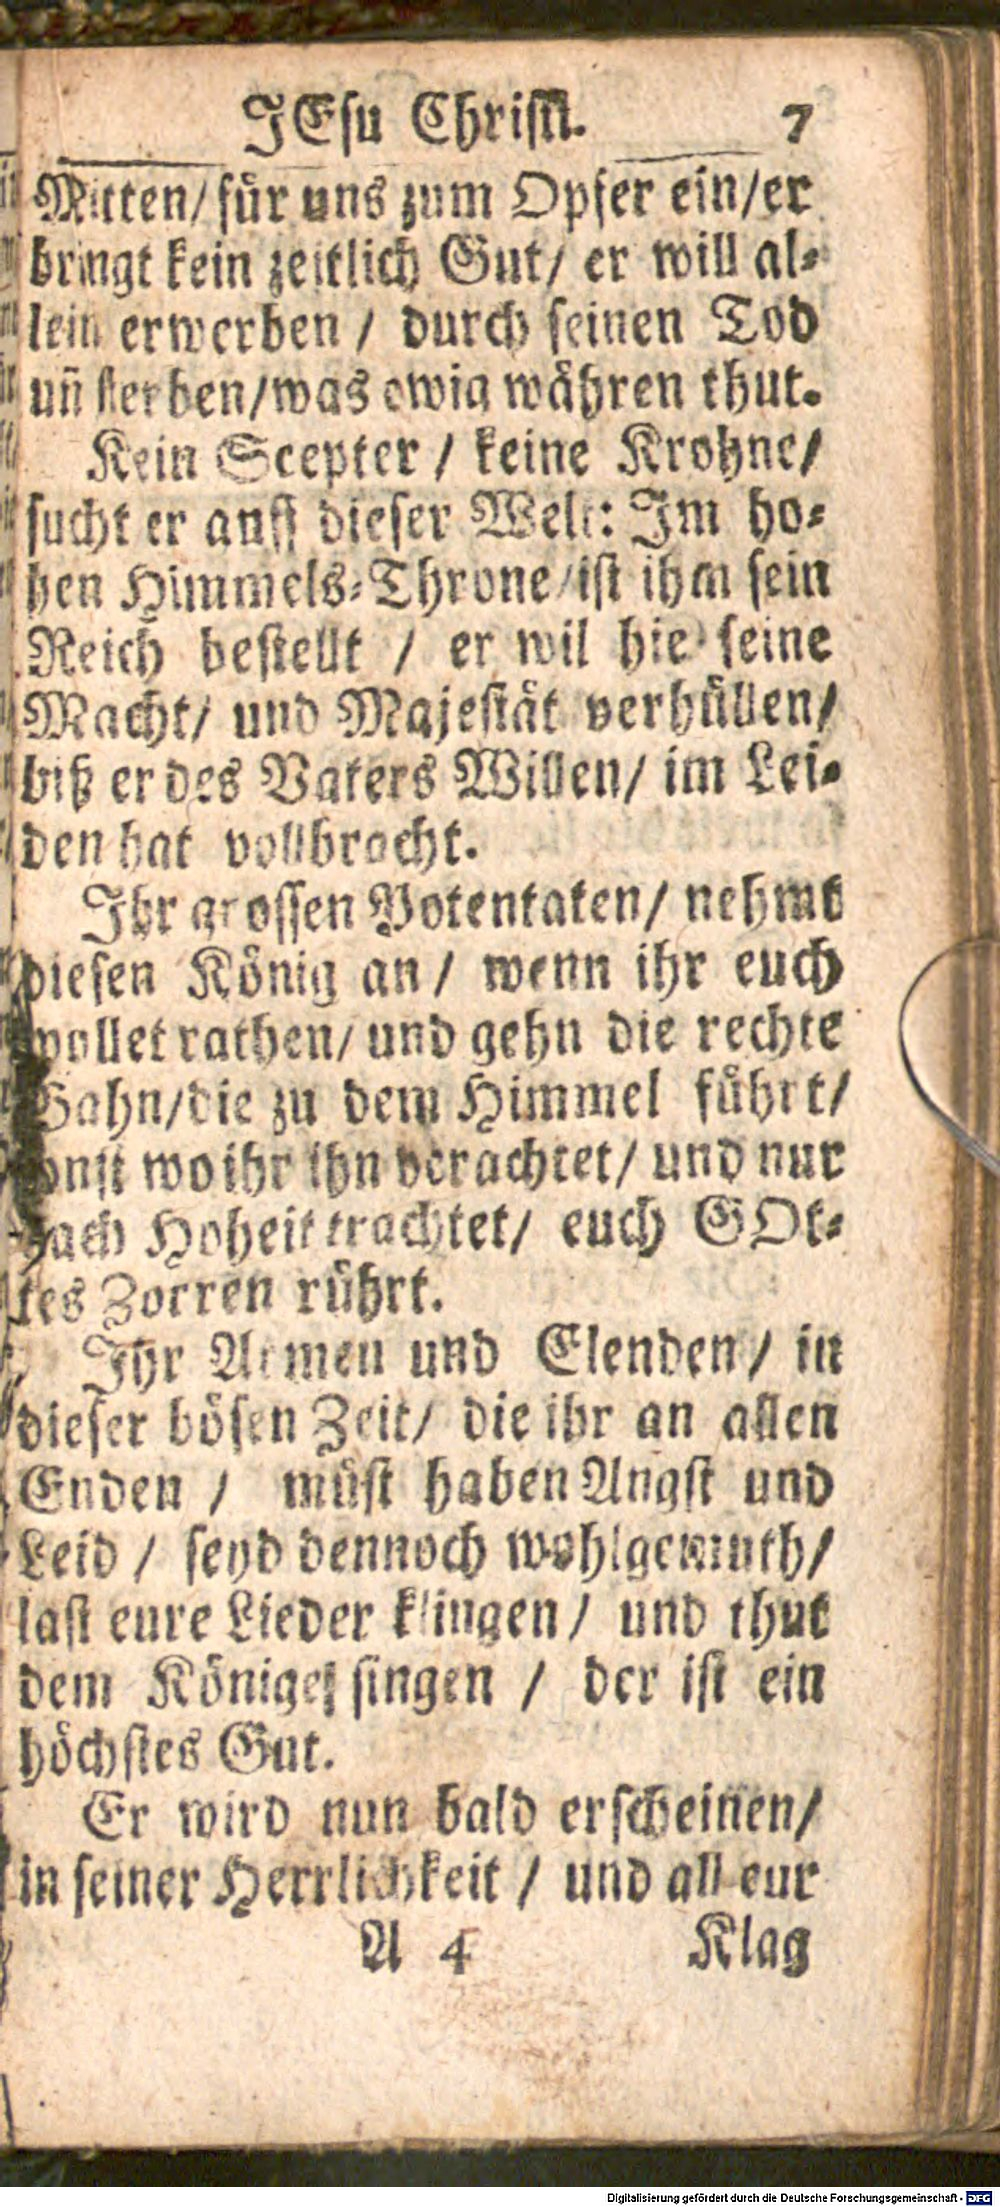 JEsu Christi. 7
Mitten/ für uns zum Opfer ein/er
bringt kein zeitlich Gut/ er will al-
lein erwerben / durch seinen Tod
uñ sterben/was ewig währen thut.
Kein Scepter / keine Krohne/
sucht er auff dieser Welt: Im ho-
hen Himmels-Throne/ist ihm sein
Reich bestellt / er wil hie seine
Macht/ und Majestät verhüllen/
biß er des Vaters Willen/ im Lei-
den hat vollbracht.
Ihr grossen Potentaten/ nehmt
diesen König an/ wenn ihr euch
wollet rathen/ und gehn die rechte
Bahn/die zu dem Himmel führt/
sonst wo ihr ihn verachtet/ und nur
nach Hoheit trachtet/ euch GOt-
tes Zorren rührt.
Ihr Armen und Elenden/ in
dieser bösen Zeit/ die ihr an allen
Enden / müst haben Angst und
Leid / seyd dennoch wohlgemuth/
last eure Lieder klingen/ und thut
dem Könige singen / der ist ein
höchstes Gut.
Er wird nun bald erscheinen/
in seiner Herrlichkeit / und all eur
A 4 Klag
Digitalisierung gefördert durch die Deutsche Forschungsgemeinschaft - DFG